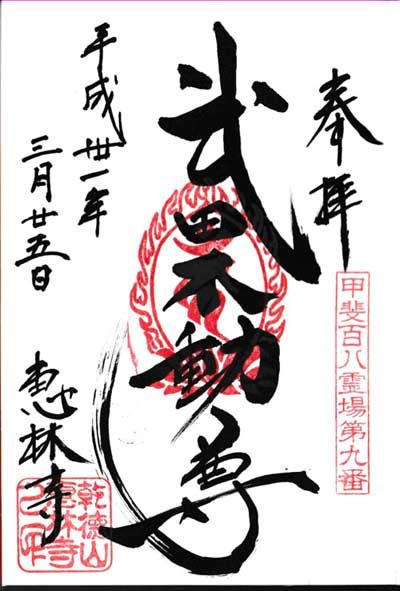 奉拝
甲斐百八霊場第九番
武田不動尊
平成卅一年
三月廿五日
恵林寺
乾徳山
恵林寺